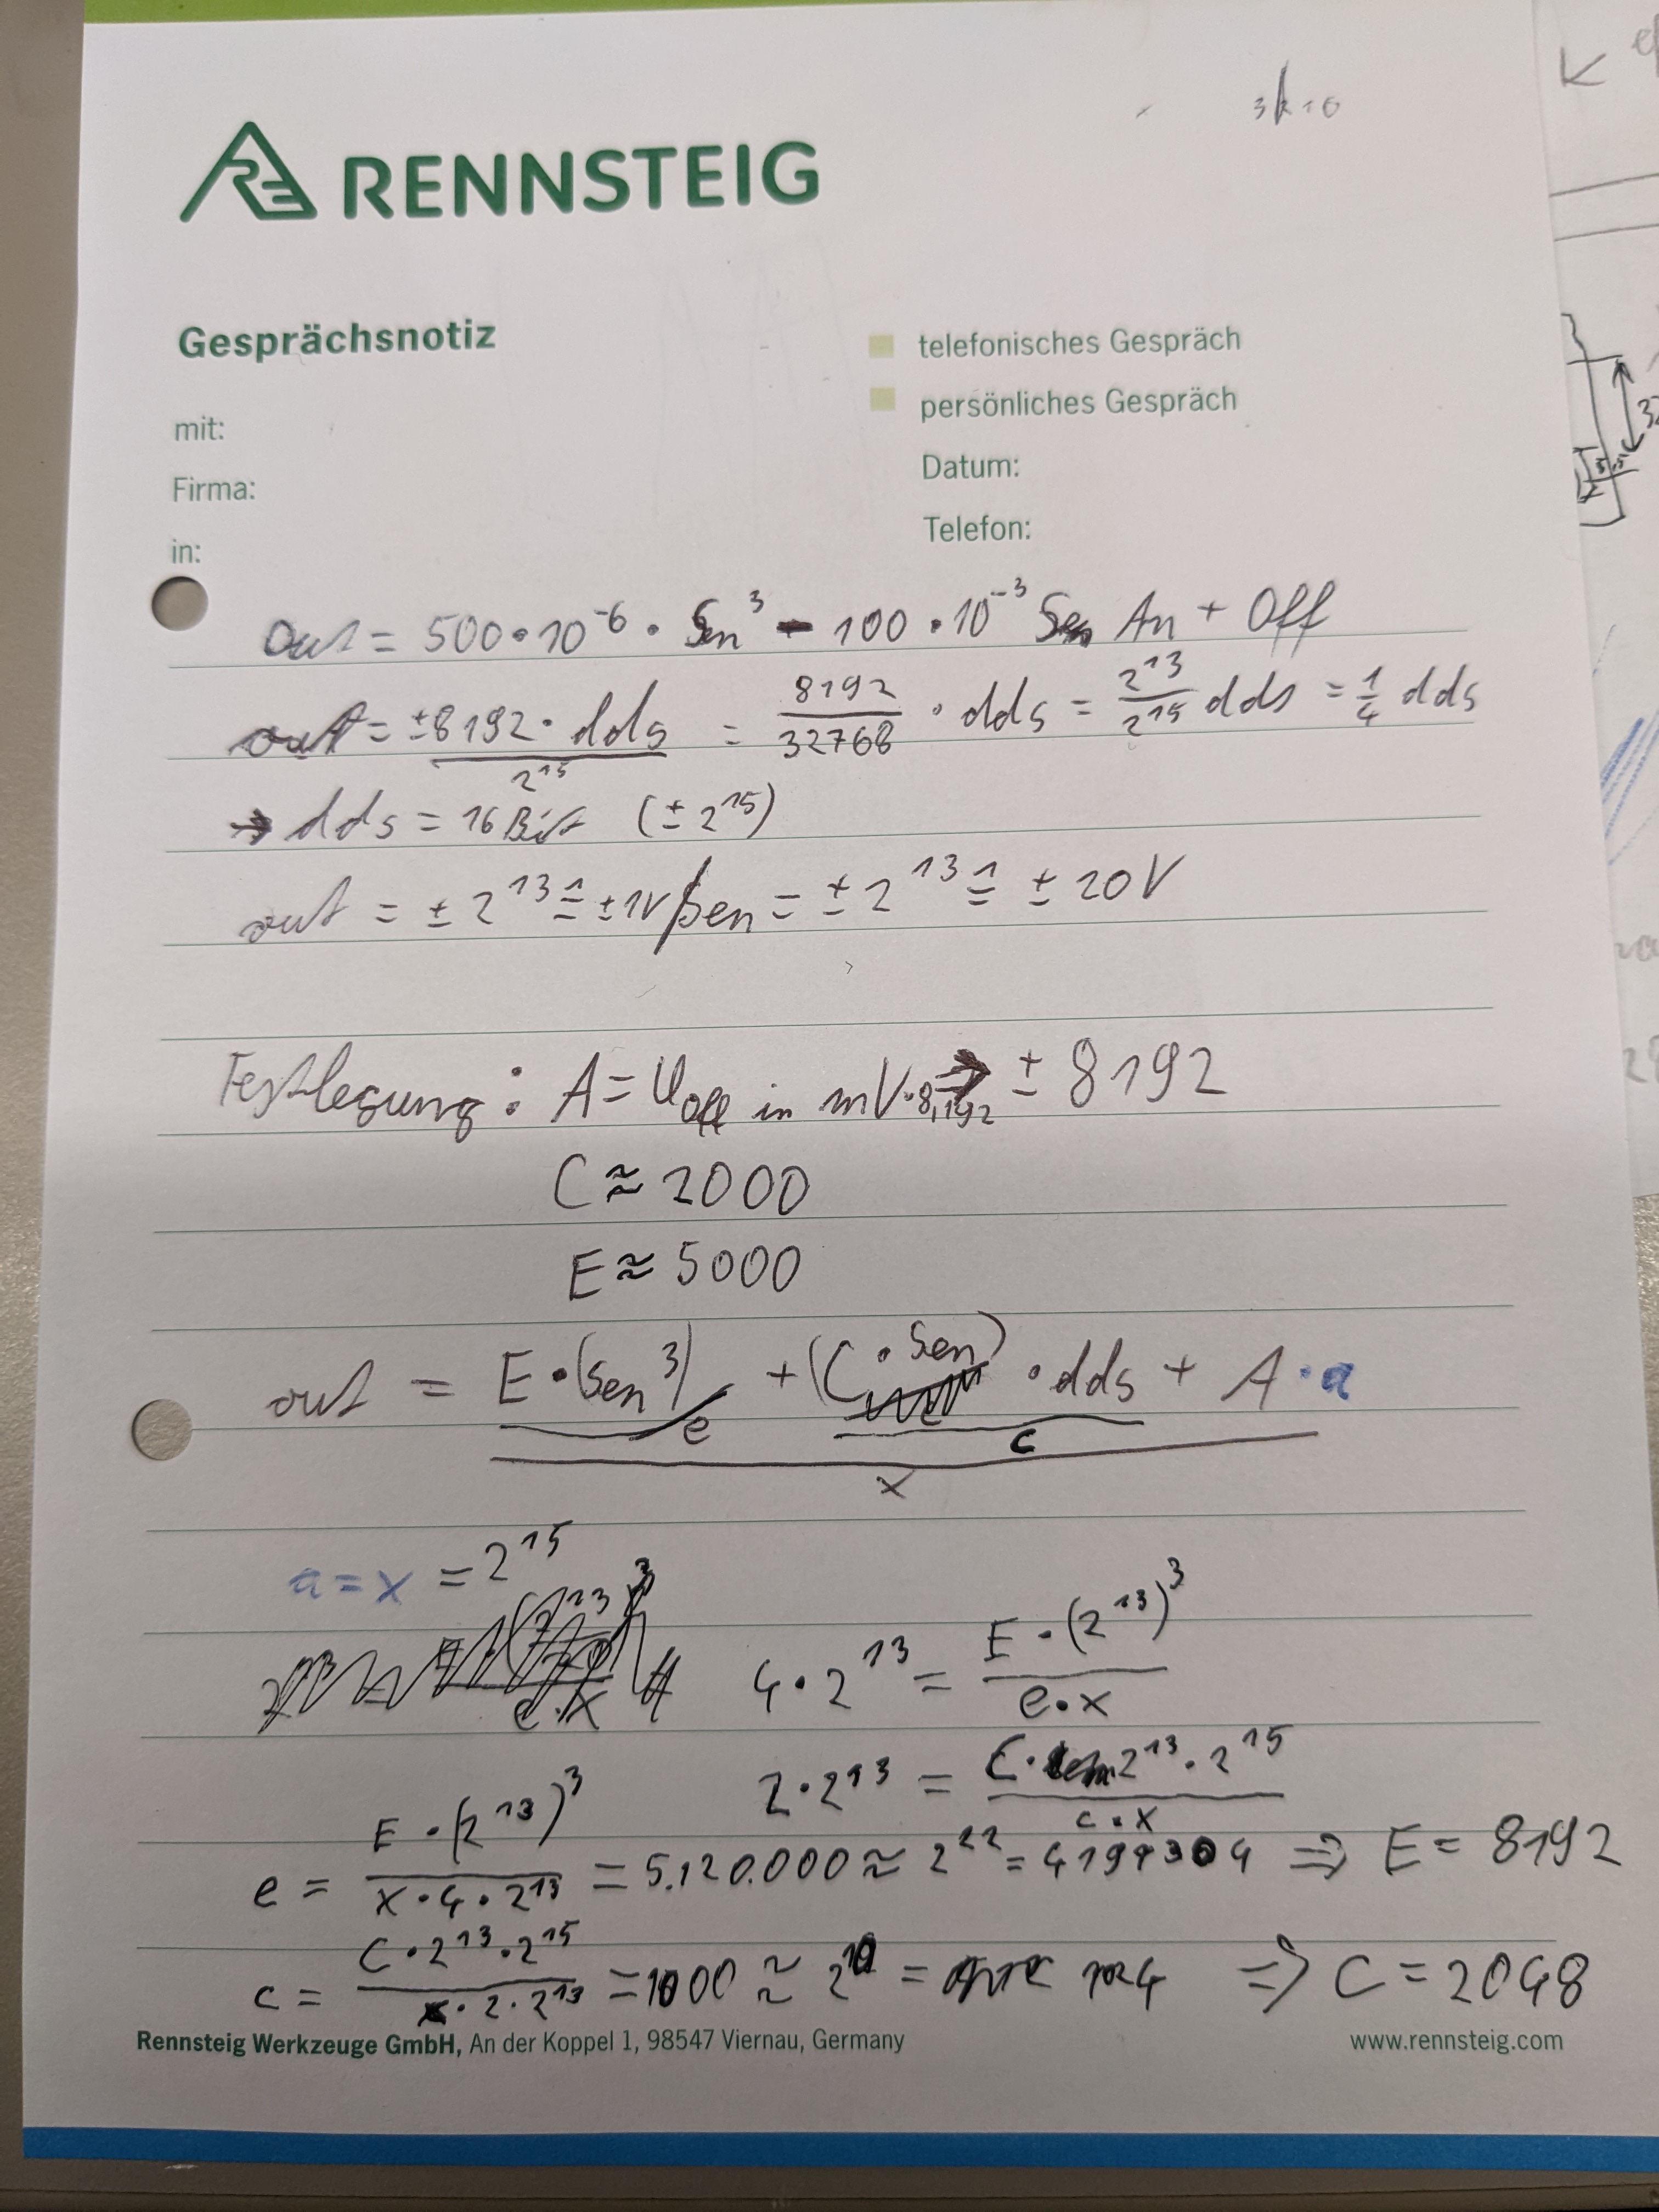 3k10
RENNSTEIG
Gesprächsnotiz
telefonisches Gespräch
persönliches Gespräch
mit:
Datum:
Firma:
Telefon:
in:
Out = 500 · 10⁻⁶ · Sen³ - 100 · 10⁻³ Sen An + Off
out = ±8192 · dds / 2¹⁵ = 8192/32768 · dds = 2¹³/2¹⁵ dds = 1/4 dds
→ dds = 16 Bit (± 2¹⁵)
out = ± 2¹³ ≙ ± 1V / Sen = ± 2¹³ ≙ ± 20V
Festlegung: A = U_off in mV · 8,192 → ± 8192
C ≈ 2000
E ≈ 5000
out = (E · (Sen³) / e + (C · Sen) · dds / c + A · a) / x
a = x = 2¹⁵
4 · 2¹³ = E · (2¹³)³ / e · x
2 · 2¹³ = C · 2¹³ · 2¹⁵ / c · x
e = E · (2¹³)³ / x · 4 · 2¹³ = 5.120.000 ≈ 2²² = 4194304 ⇒ E = 8192
c = C · 2¹³ · 2¹⁵ / x · 2 · 2¹³ = 1000 ≈ 2¹⁰ = 1024 ⇒ C = 2048
Rennsteig Werkzeuge GmbH, An der Koppel 1, 98547 Viernau, Germany
www.rennsteig.com